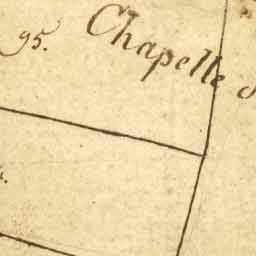 95.
Chapelle